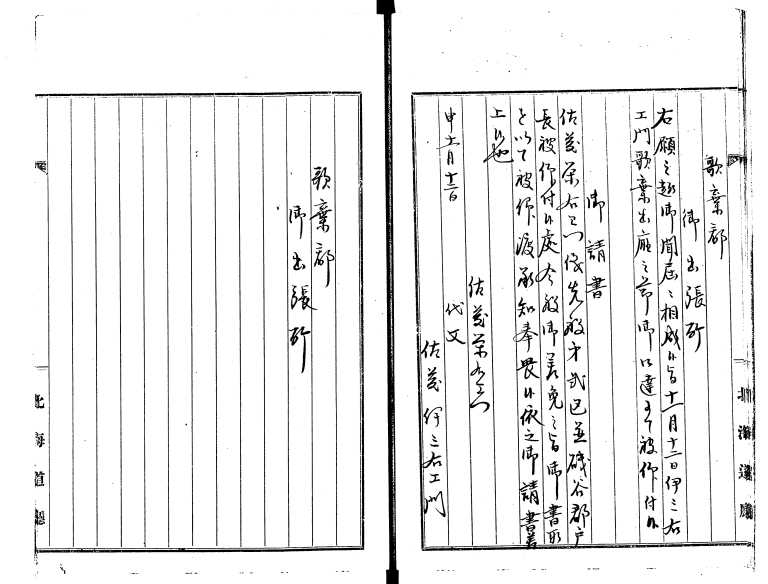 歌棄郡
御出張所
右願之趣御聞届ニ相成候旨十一月十二日伊三右
エ門歌棄出庁之節御口達ヲ以被仰付候
御請書
佐藤栄右エ門儀先般才弐区並磯谷郡戸
長被仰付候處今般御差免之旨御書取
を以て被仰渡承知奉畏候依之御請書差
上候也
申十一月十二日
佐藤栄右エ門
代父
佐藤伊三右エ門
北海道廳
歌棄郡
御出張所
北海道廳